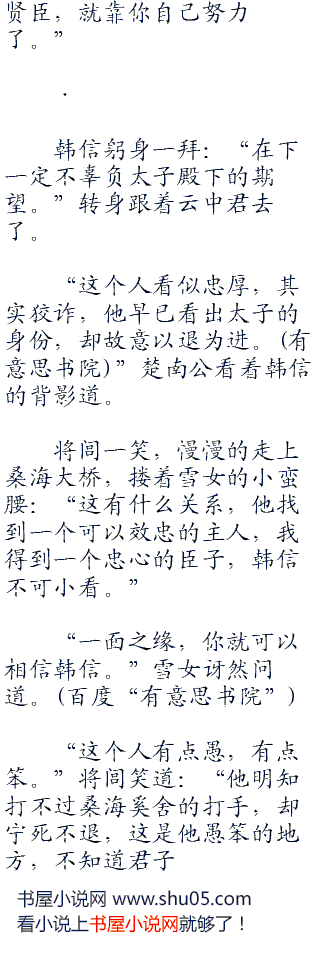 贤臣，就靠你自己努力
了。”
.
韩信躬身一拜：“在下
一定不辜负太子殿下的期
望。”转身跟着云中君去
了。
“这个人看似忠厚，其
实狡诈，他早已看出太子的
身份，却故意以退为进。(有
意思书院)”楚南公看着韩信
的背影道。
将闾一笑，慢慢的走上
桑海大桥，搂着雪女的小蛮
腰：“这有什么关系，他找
到一个可以效忠的主人，我
得到一个忠心的臣子，韩信
不可小看。”
“一面之缘，你就可以
相信韩信。”雪女讶然问
道。(百度“有意思书院”)
“这个人有点愚，有点
笨。”将闾笑道：“他明知
打不过桑海奚舍的打手，却
宁死不退，这是他愚笨的地
方，不知道君子
书屋小说网 www.shu05.com
看小说上书屋小说网就够了！